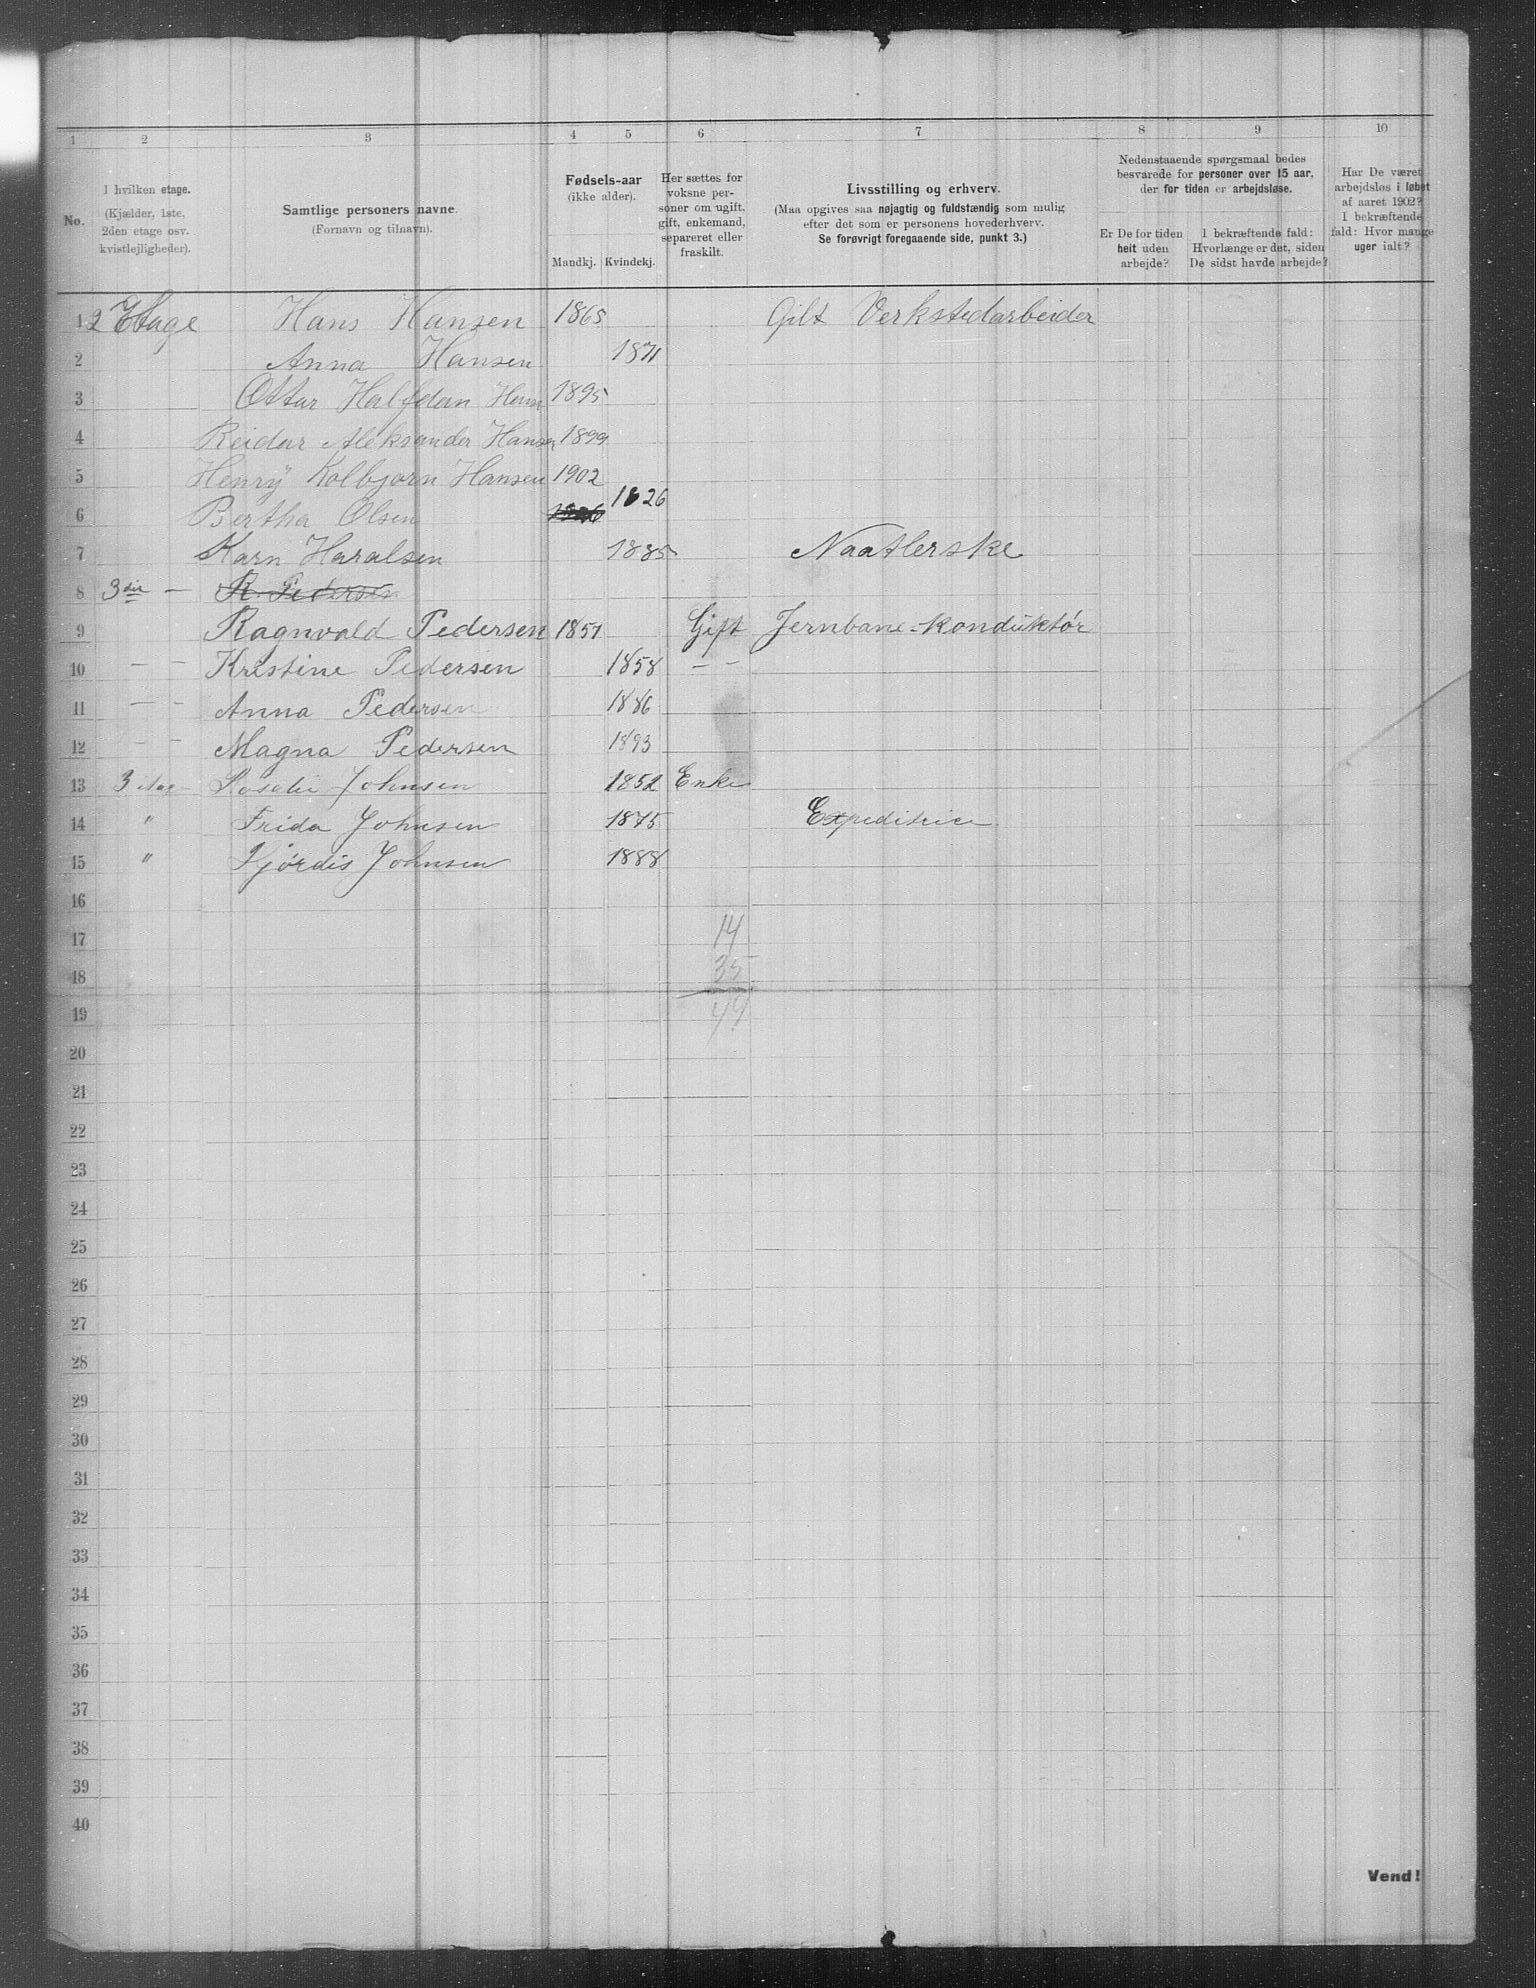 1 2 3 4 5 6 7 8 9 10
No.
I hvilken etage.
(Kjælder, 1ste,
2den etage osv.
kvistlejligheder).
Samtlige personers navne.
(Fornavn og tilnavn).
Fødsels-aar
(ikke alder).
Mandkj. Kvindekj.
Her sættes for
voksne per-
soner om ugift,
gift, enkemand,
separeret eller
fraskilt.
Livsstilling og erhverv.
(Maa opgives saa nøjagtig og fuldstændig som mulig
efter det som er personens hovederhverv.
Se forøvrigt foregaaende side, punkt 3.)
Nedenstaaende spørgsmaal bedes
besvarede for personer over 15 aar,
der for tiden er arbejdsløse.
Er De for tiden
helt uden
arbejde?
I bekræftende fald:
Hvorlænge er det, siden
De sidst havde arbejde?
Har De været
arbejdsløs i løbet
af aaret 1902?
I bekræftende
fald: Hvor mange
uger ialt?
1 2 Etage Hans Hansen 1865 Gift Verkstedarbeider
2 Anna Hansen 1871
3 Ottar Halfdan Hans 1895
4 Reidar Aleksander Hansen 1899
5 Henrÿ Kolbjorn Hansen 1902
6 Bertha Olsen 1826 1826
7 Karn Haralsen 1885 Naatlerske
8 3die — R. Pedersen
9 Ragnvald Pedersen 1851 Gift Jernbane-konduktør
10 — — Kristine Pedersen 1858 — —
11 — — Anna Pedersen 1886
12 — — Magna Pedersen 1893
13 3 etag Johnsen 1852 Enke
14 " Frida Johnsen 1875 Expeditrice
15 " Hjördis Johnsen 1888
16
17 14
18 35
19 49
20
21
22
23
24
25
26
27
28
29
30
31
32
33
34
35
36
37
38
39
40
Vend!